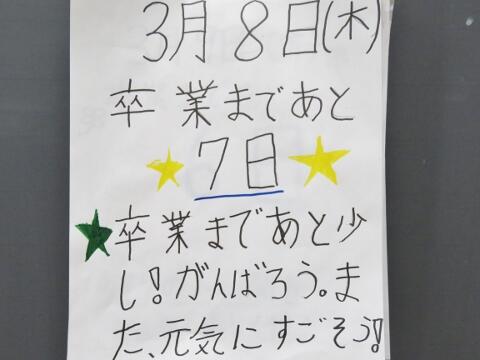 3月8日(木)
卒業まであと
7日
卒業まであと少
し!がんばろう。ま
た、元気にすごそう!